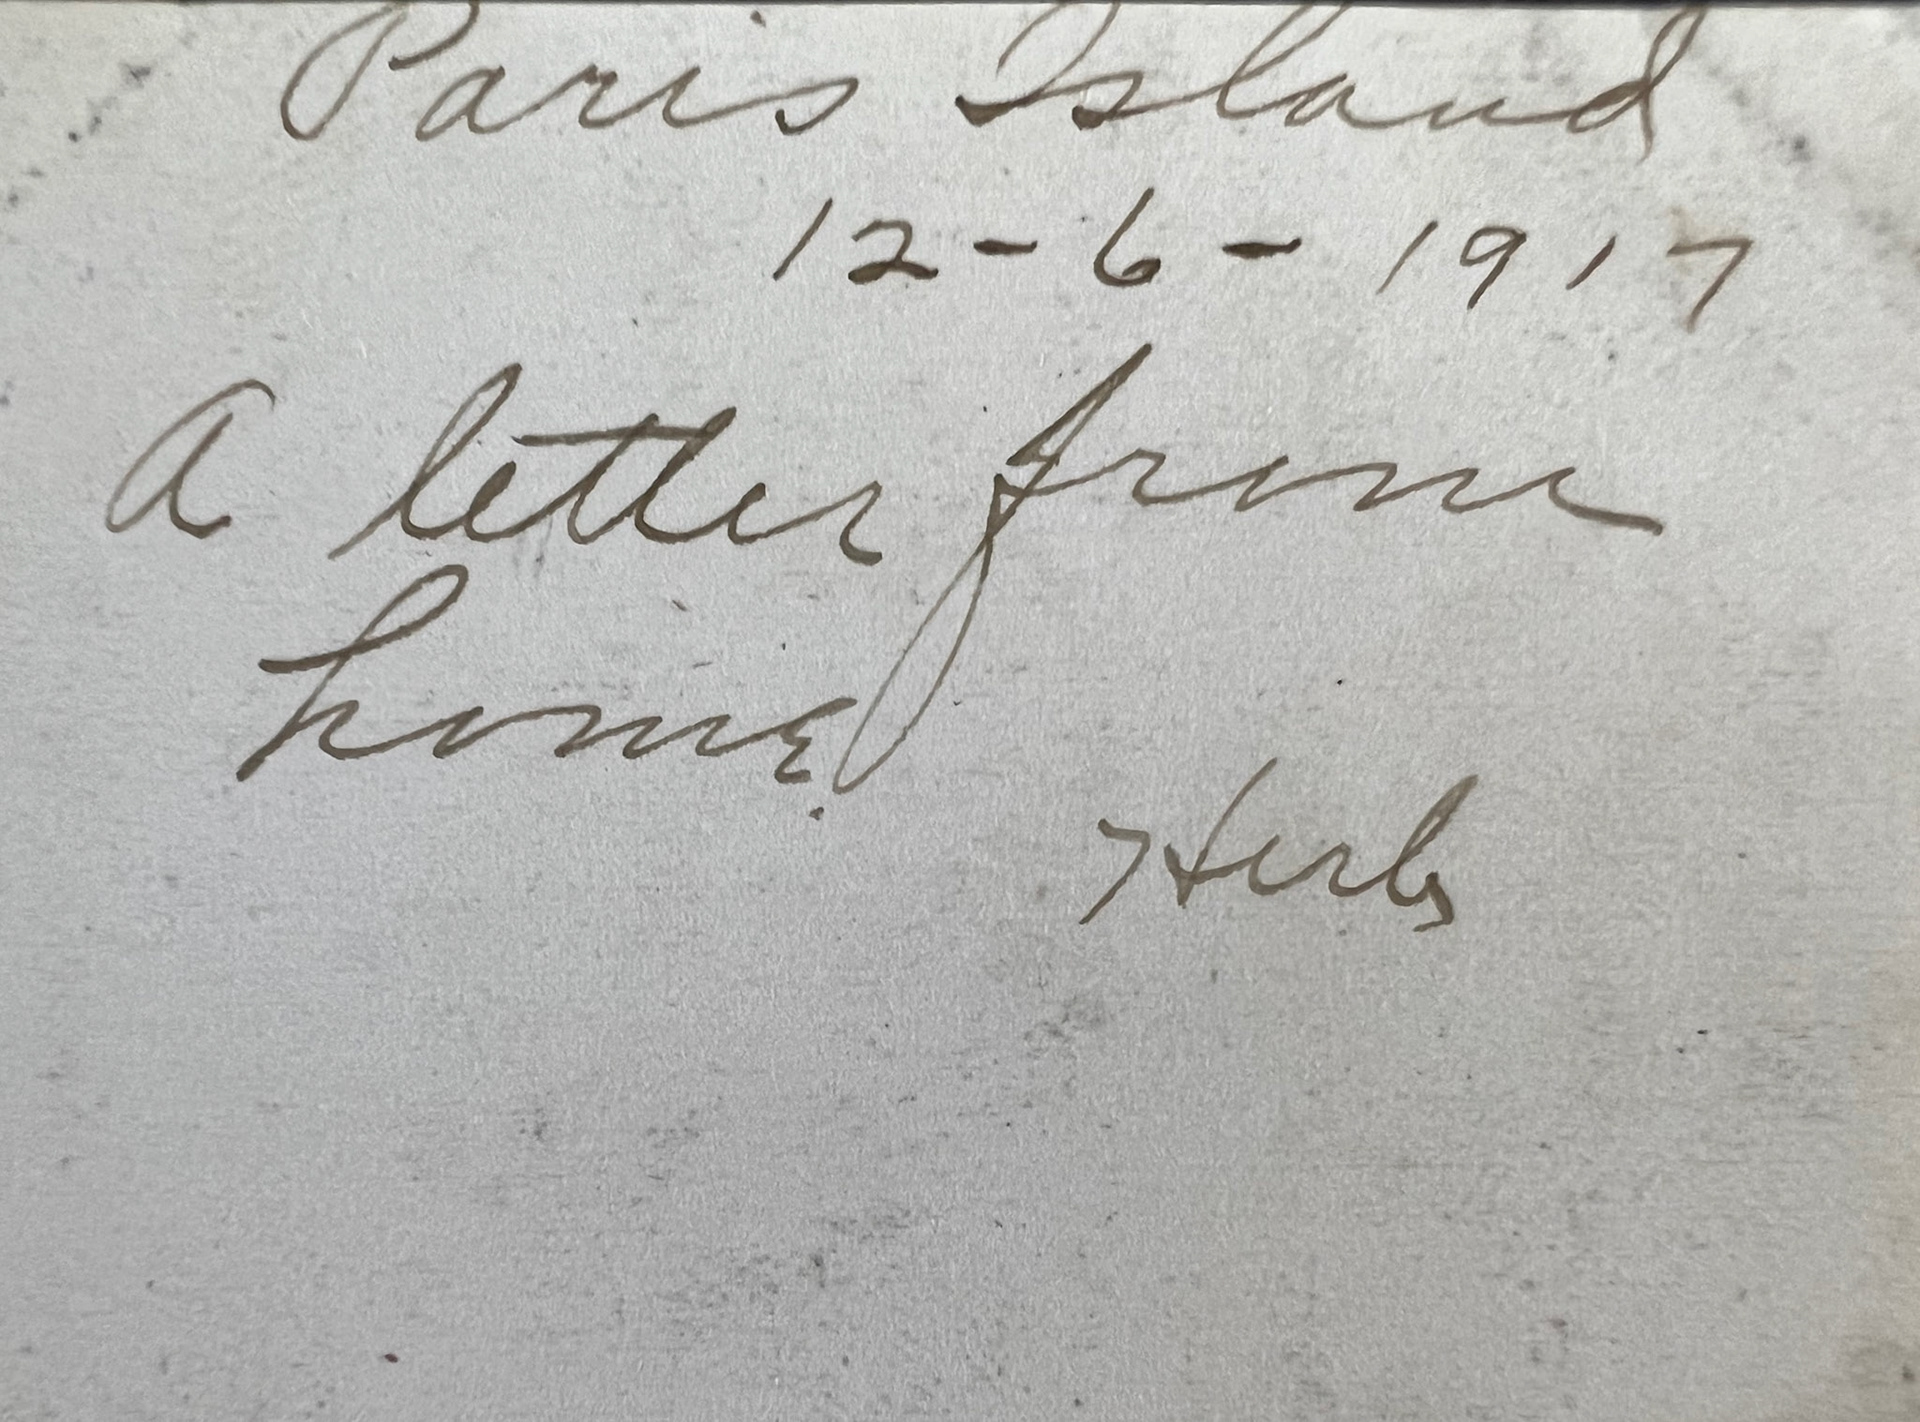 Paris Island
12-6-1917
A letter from
home.
Herb